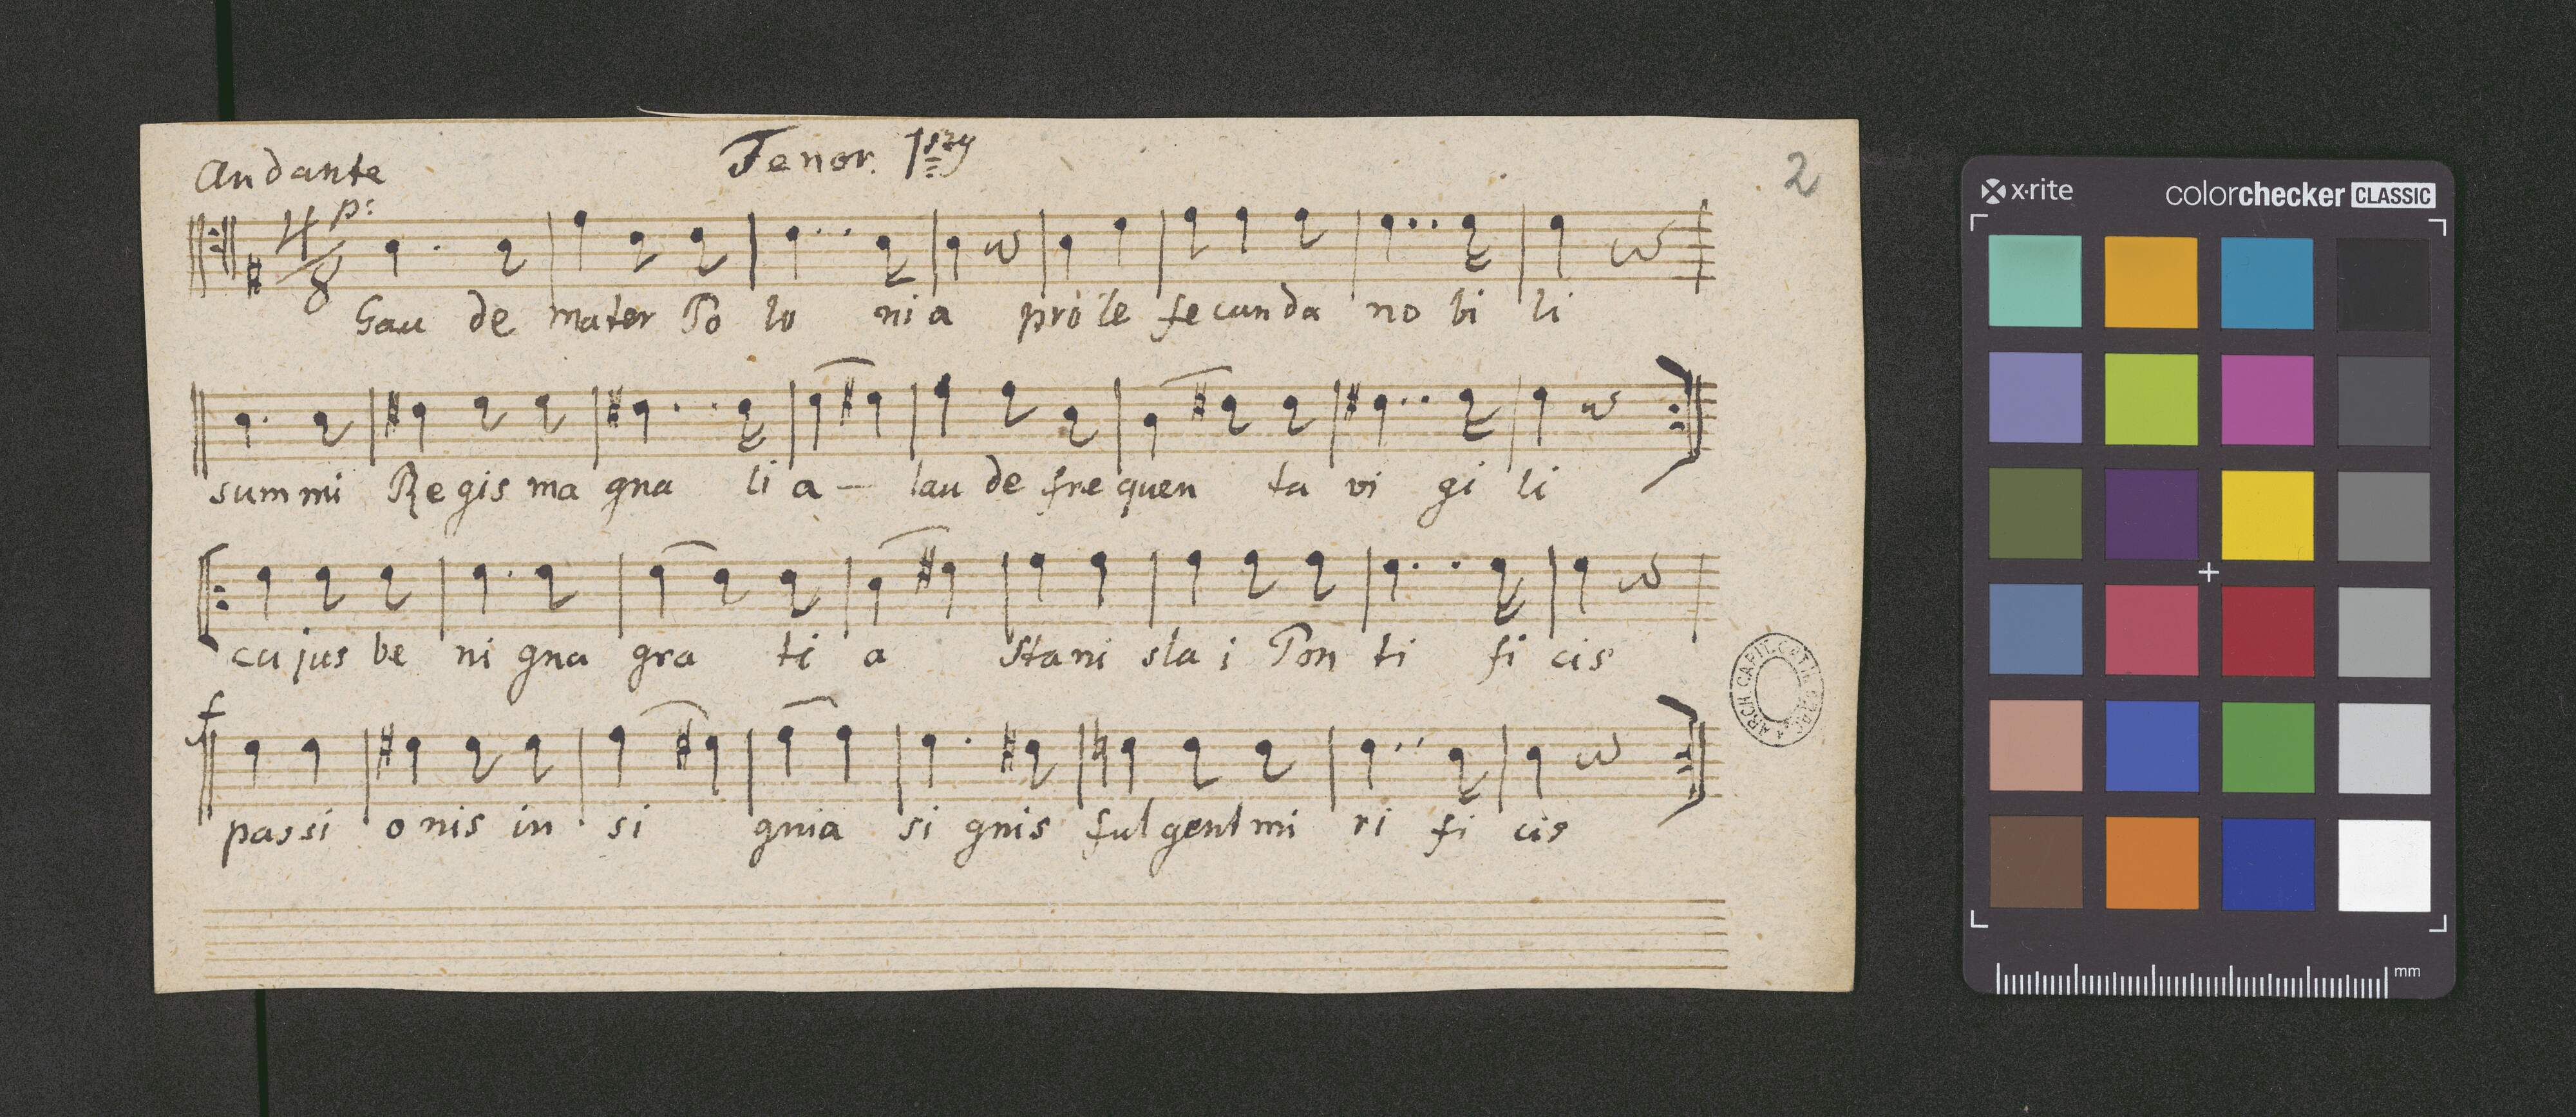 Andante
Tenor. 1szy
2
4/8 p:
Gau de mater Po lo ni a pro le fe cun da no bi li
sum mi Re gis ma gna li a — lau de fre quen ta vi gi li
cu jus be ni gna gra ti a Sta ni sla i Pon ti fi cis
f
pas si o nis in si gnia si gnis ful gent mi ri fi cis
ARCH. CAPIT.
x-rite
colorchecker CLASSIC
mm